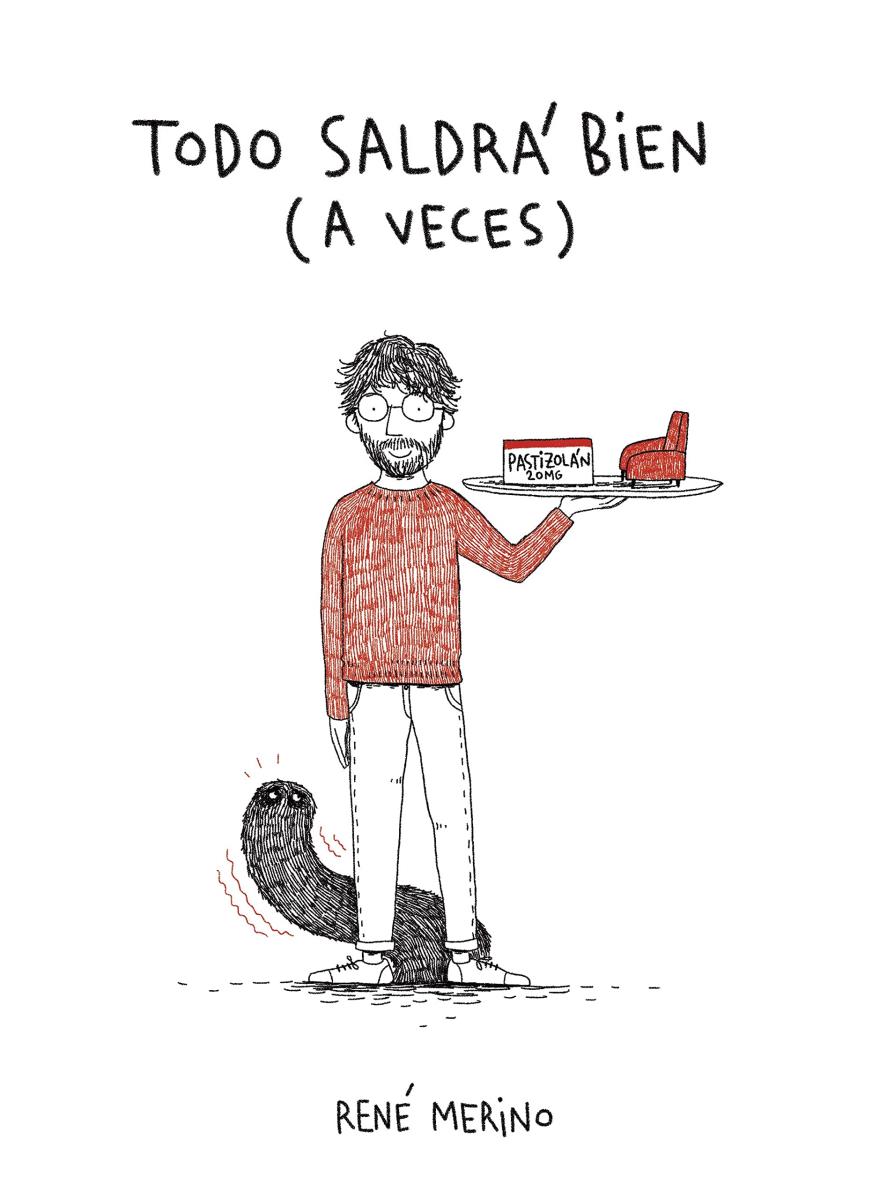 TODO SALDRÁ BiEN
(A VECES)
PASTiZOLÁN
20MG
RENÉ MERiNO